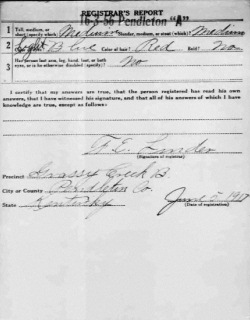 REGISTRAR'S REPORT
16-5-56 Pendleton "A"
1 Tall, medium, or short (specify which)? Medium Slender, medium, or stout (which)? Medium
2 Color of eyes? Light Blue Color of hair? Red Bald? No
3 Has person lost arm, leg, hand, foot, or both eyes, or is he otherwise disabled (specify)? No
I certify that my answers are true, that the person registered has read his own answers, that I have witnessed his signature, and that all of his answers of which I have knowledge are true, except as follows:
(Signature of registrar)
Precinct Grassy Creek
City or County Pendleton Co.
State Kentucky
June 5, 1917
(Date of registration)